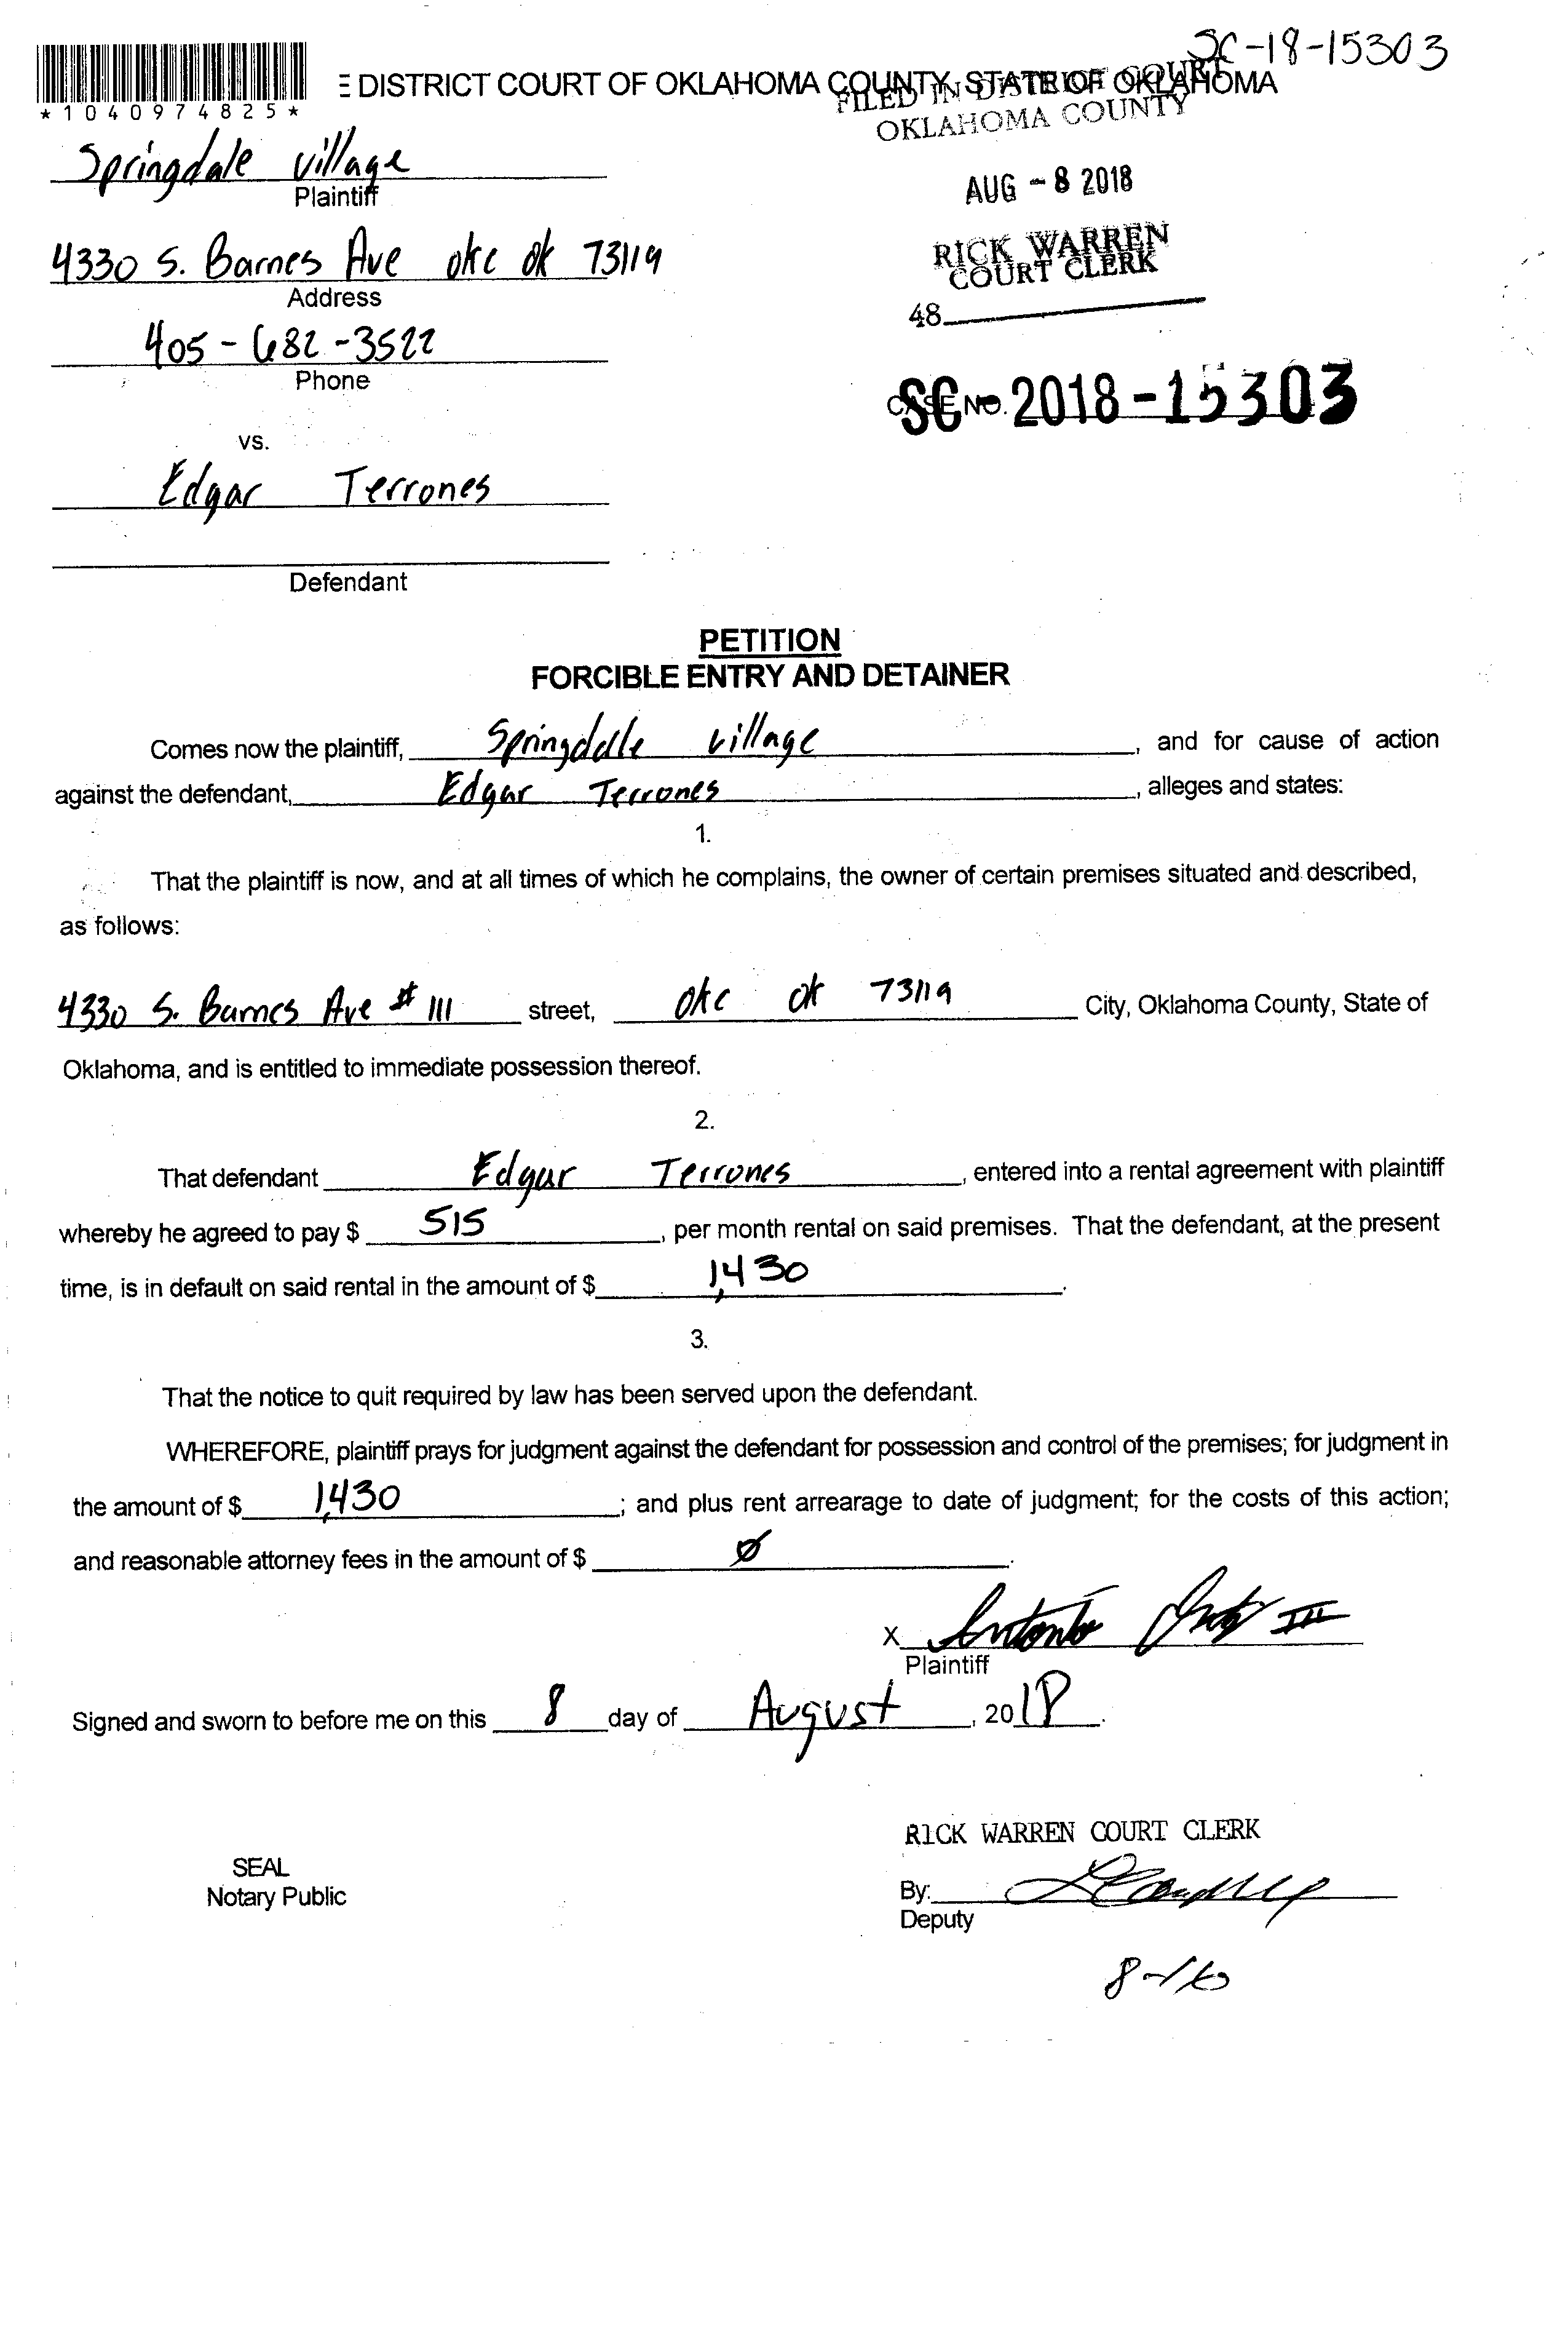 SC-18-15303
E DISTRICT COURT OF OKLAHOMA COUNTY, STATE OF OKLAHOMA
*1040974825*
FILED IN DISTRICT COURT
OKLAHOMA COUNTY
AUG - 8 2018
RICK WARREN
COURT CLERK
48
Springdale village
Plaintiff
4330 S. Barnes Ave okc ok 73119
Address
405-682-3522
Phone
CASE NO. SC-2018-15303
vs.
Edgar Terrones
Defendant
PETITION
FORCIBLE ENTRY AND DETAINER
Comes now the plaintiff, Springdale village, and for cause of action
against the defendant, Edgar Terrones, alleges and states:
1.
That the plaintiff is now, and at all times of which he complains, the owner of certain premises situated and described,
as follows:
4330 S. Barnes Ave # 111 street, okc ok 73119 City, Oklahoma County, State of
Oklahoma, and is entitled to immediate possession thereof.
2.
That defendant Edgar Terrones, entered into a rental agreement with plaintiff
whereby he agreed to pay $ 515, per month rental on said premises. That the defendant, at the present
time, is in default on said rental in the amount of $ 1,430.
3.
That the notice to quit required by law has been served upon the defendant.
WHEREFORE, plaintiff prays for judgment against the defendant for possession and control of the premises; for judgment in
the amount of $ 1,430; and plus rent arrearage to date of judgment; for the costs of this action;
and reasonable attorney fees in the amount of $ Ø.
X Antonio III
Plaintiff
Signed and sworn to before me on this 8 day of August, 2018.
RICK WARREN COURT CLERK
SEAL
Notary Public
By:
Deputy
8-16